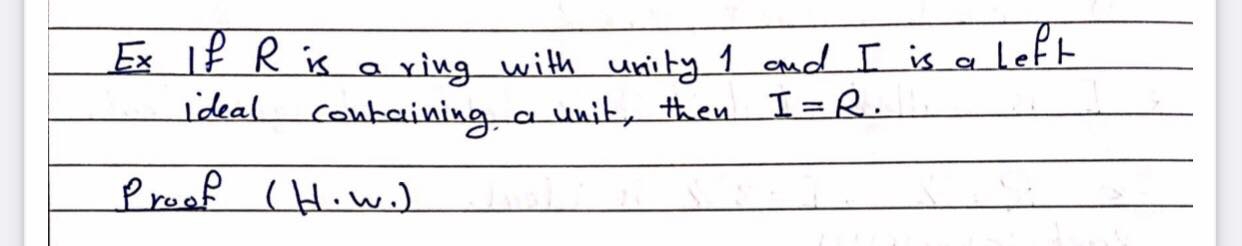 Ex If R is a ring with unity 1 and I is a left
ideal containing a unit, then I = R.
Proof (H.w.)